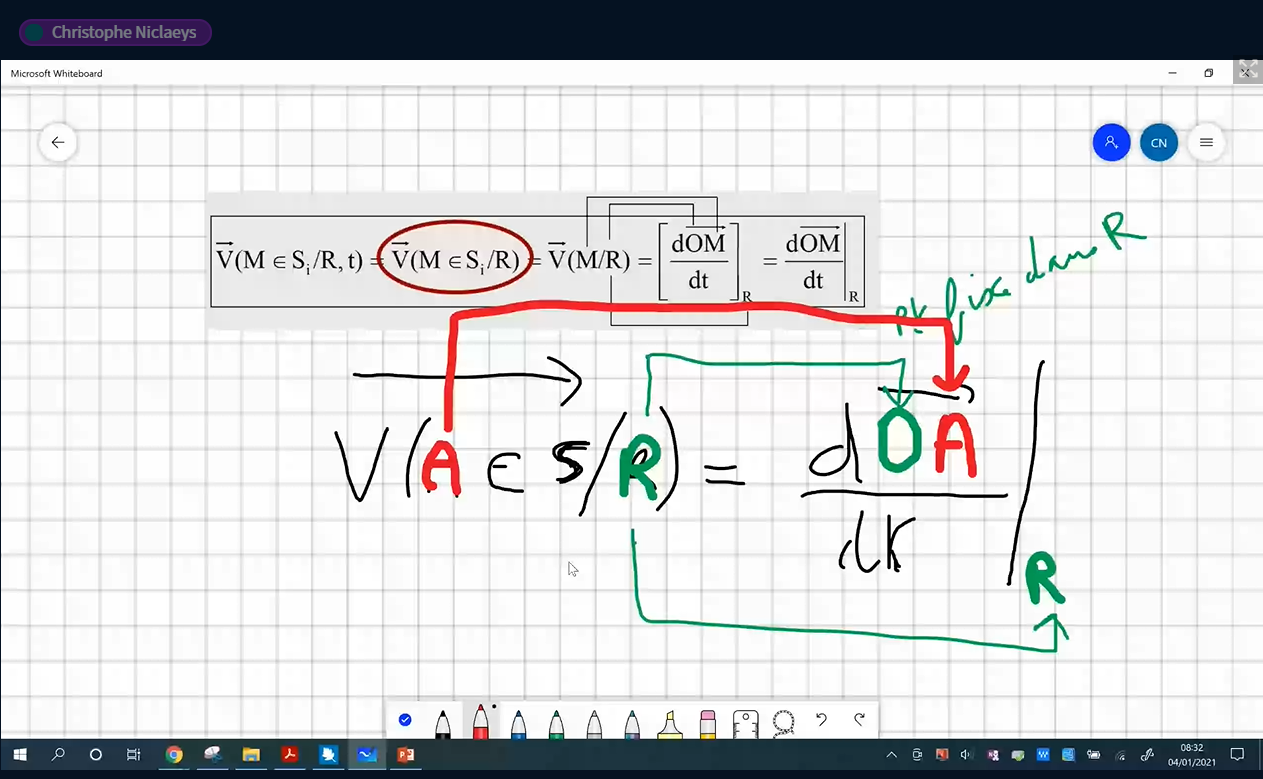 Christophe Niclaeys
Microsoft Whiteboard
CN
V(M ∈ Si/R, t) = V(M ∈ Si/R) = V(M/R) = [dOM/dt]R = dOM/dt|R
pt fixe dans R
V(A ∈ S/R) = dOA/dt|R
08:32
04/01/2021